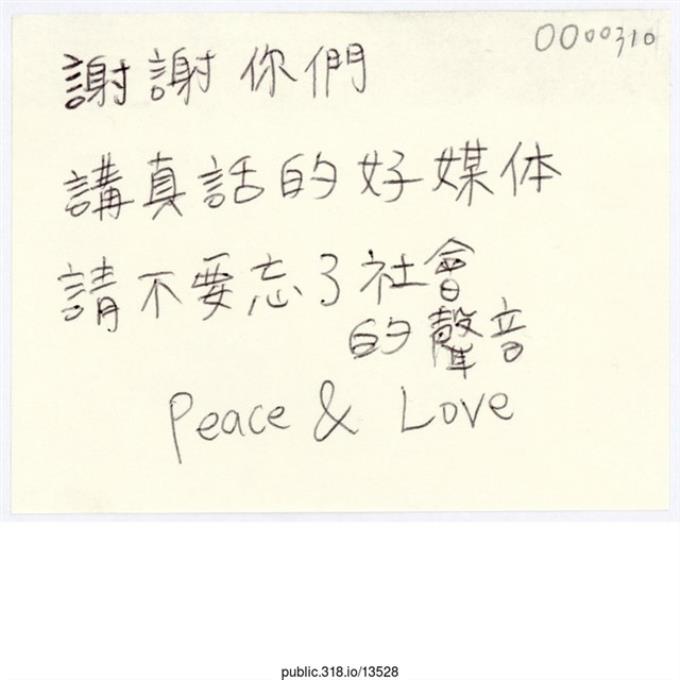 0000310
謝謝你們
講真話的好媒体
請不要忘了社會
的聲音
Peace & Love
public.318.io/13528